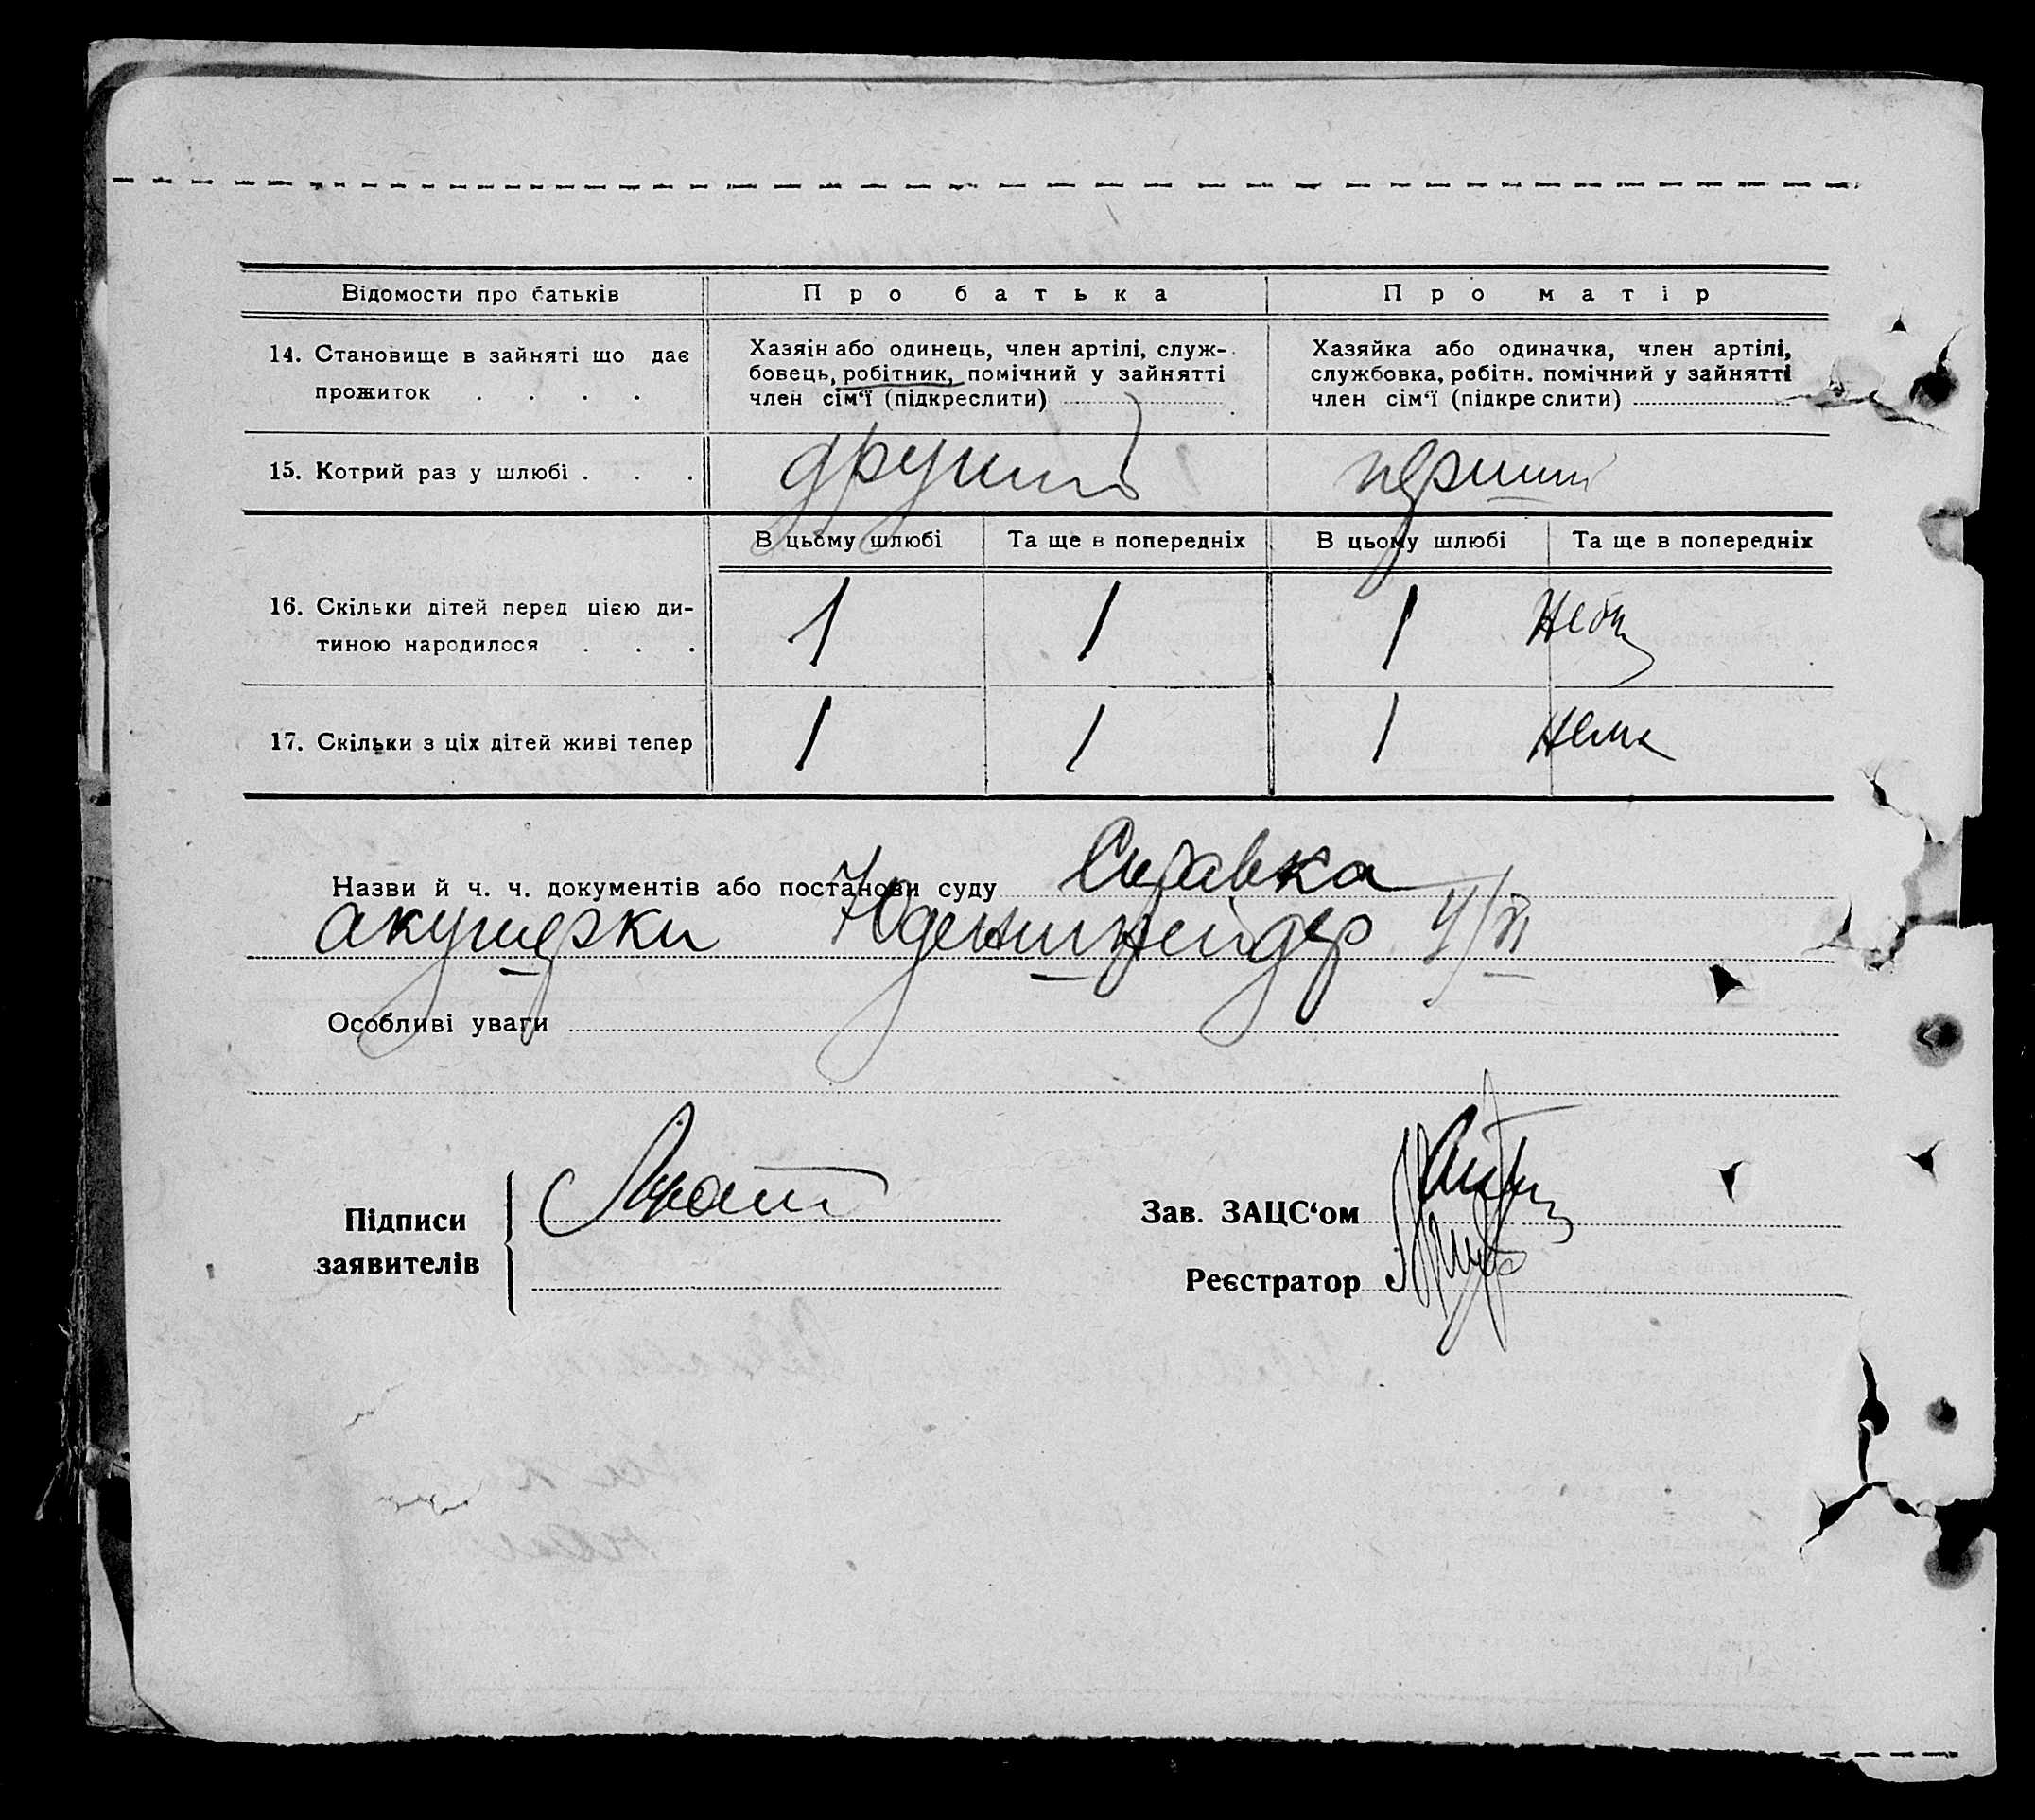 Відомости про батьків
Про батька
Про матір
14. Становище в зайняті що дає
прожиток . . . .
Хазяін або одинець, член артілі, служ-
бовець, робітник, помічний у зайнятті
член сім‘ї (підкреслити)
Хазяйка або одиначка, член артілі,
службовка, робітн. помічний у зайнятті
член сім‘ї (підкреслити)
15. Котрий раз у шлюбі . . .
другий
перший
В цьому шлюбі
Та ще в попередніх
В цьому шлюбі
Та ще в попередніх
16. Скільки дітей перед цією ди-
тиною народилося . . .
1
1
1
17. Скільки з ціх дітей живі тепер
1
1
1
нема
Назви й ч. ч. документів або постанови суду Справка
акушерки
Особливі уваги
Підписи
заявителів
Зав. ЗАЦС‘ом
Реєстратор